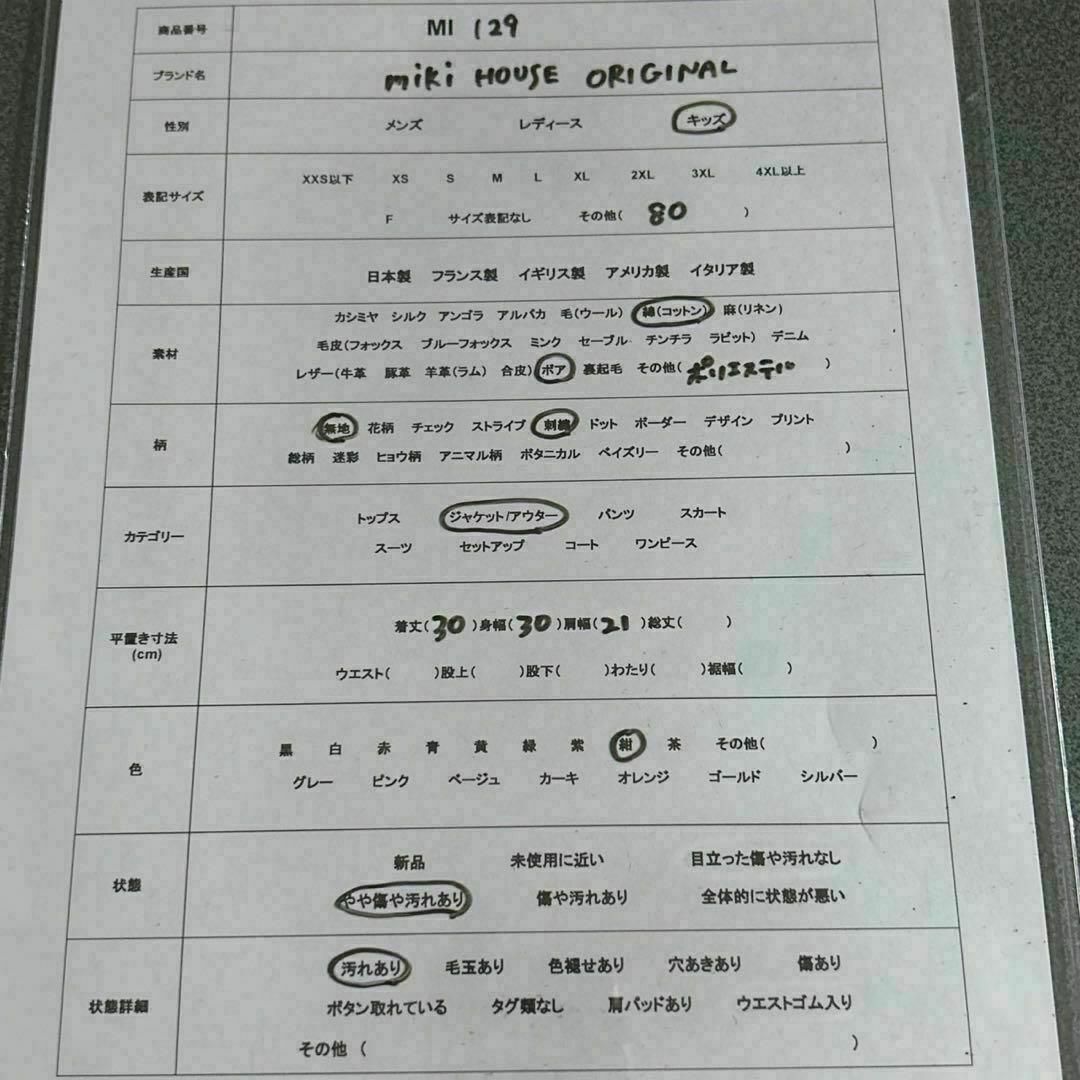 商品番号 MI 129
ブランド名 miki HOUSE ORIGINAL
性別 メンズ レディース キッズ
表記サイズ
XXS以下 XS S M L XL 2XL 3XL 4XL以上
F サイズ表記なし その他( 80 )
生産国 日本製 フランス製 イギリス製 アメリカ製 イタリア製
素材
カシミヤ シルク アンゴラ アルパカ 毛(ウール) 綿(コットン) 麻(リネン)
毛皮(フォックス ブルーフォックス ミンク セーブル チンチラ ラビット) デニム
レザー(牛革 豚革 羊革(ラム) 合皮) ボア 裏起毛 その他( ポリエステル )
柄
無地 花柄 チェック ストライプ 刺繍 ドット ボーダー デザイン プリント
総柄 迷彩 ヒョウ柄 アニマル柄 ボタニカル ペイズリー その他( )
カテゴリー
トップス ジャケット/アウター パンツ スカート
スーツ セットアップ コート ワンピース
平置き寸法
(cm)
着丈( 30 )身幅( 30 )肩幅( 21 )総丈( )
ウエスト( )股上( )股下( )わたり( )裾幅( )
色
黒 白 赤 青 黄 緑 紫 紺 茶 その他( )
グレー ピンク ベージュ カーキ オレンジ ゴールド シルバー
状態
新品 未使用に近い 目立った傷や汚れなし
やや傷や汚れあり 傷や汚れあり 全体的に状態が悪い
状態詳細
汚れあり 毛玉あり 色褪せあり 穴あきあり 傷あり
ボタン取れている タグ類なし 肩パッドあり ウエストゴム入り
その他 ( )